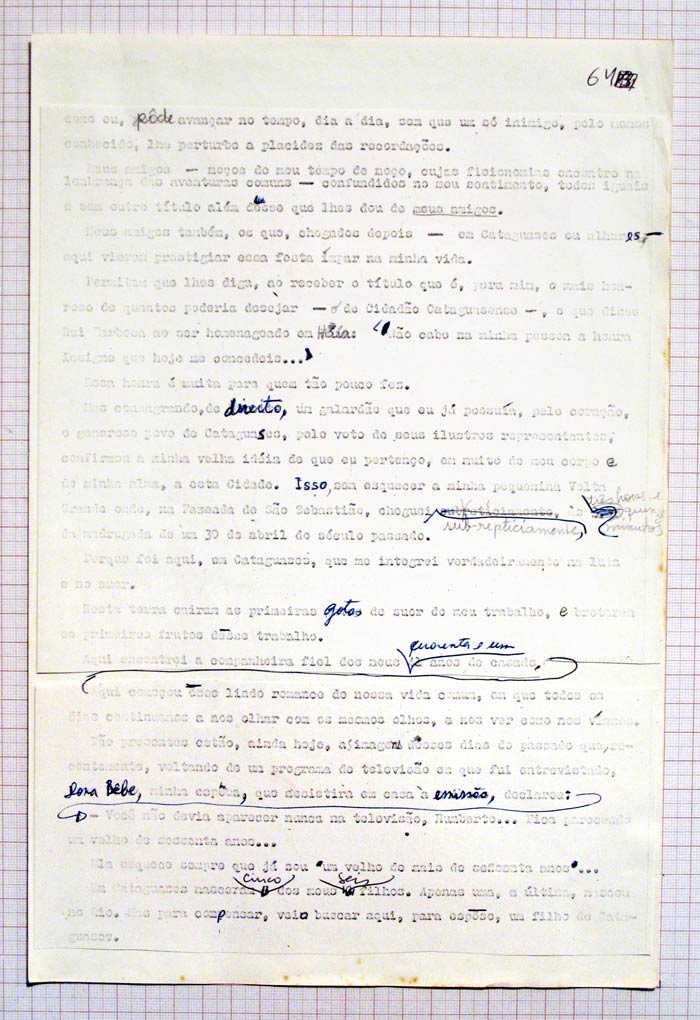 64
como eu, pôde avançar no tempo, dia a dia, sem que um só inimigo, pelo menos
conhecido, lhe perturbe a placidez das recordações.
Meus amigos — moços do meu tempo de moço, cujas fisionomias encontro na
lembrança das aventuras comuns — confundidos no meu sentimento, todos iguais
e sem outro título além dêsse que lhes dou de meus amigos.
Meus amigos também, os que, chegados depois — em Cataguases ou alhures —
aqui vieram prestigiar essa festa ímpar na minha vida.
Permitam que lhes diga, ao receber o título que é, para mim, o mais hon-
roso de quantos poderia desejar — o de Cidadão Cataguasense —, o que disse
Rui Barbosa ao ser homenageado em Haia: "Não cabe na minha pessoa a honra
insigne que hoje me concedeis..."
Essa honra é muita para quem tão pouco fez.
Mas consagrando, de direito, um galardão que eu já possuía, pelo coração,
o generoso povo de Cataguases, pelo voto de seus ilustres representantes,
confirmou a minha velha idéia de que eu pertenço, em muito de meu corpo e
de minha alma, a esta Cidade. Isso, sem esquecer a minha pequenina Volta
Grande onde, na Fazenda de São Sebastião, cheguei sub-repticiamente, às três horas e quinze minutos
da madrugada de um 30 de abril do século passado.
Porque foi aqui, em Cataguases, que me integrei verdadeiramente na luta
e no amor.
Nesta terra cairam as primeiras gotas de suor do meu trabalho, e brotaram
os primeiros frutos dêsse trabalho.
Aqui encontrei a companheira fiel dos meus quarenta e um anos de casado.
Aqui começou êsse lindo romance de nossa vida comum, em que todos os
dias continuamos a nos olhar com os mesmos olhos, a nos ver como nos víamos.
Tão presentes estão, ainda hoje, as imagens dêsses dias do passado que, re-
centemente, voltando de um programa de televisão em que fui entrevistado,
Dona Bêbe, minha espôsa, que assistira em casa à emissão, declarou:
— Você não devia aparecer nunca na televisão, Humberto... Fica parecendo
um velho de sessenta anos...
Ela esquece sempre que já sou "um velho de mais de sessenta anos"...
Em Cataguases nasceram cinco dos meus seis filhos. Apenas uma, a última, nasceu
no Rio. Mas para compensar, veio buscar aqui, para espôso, um filho de Cata-
guases.